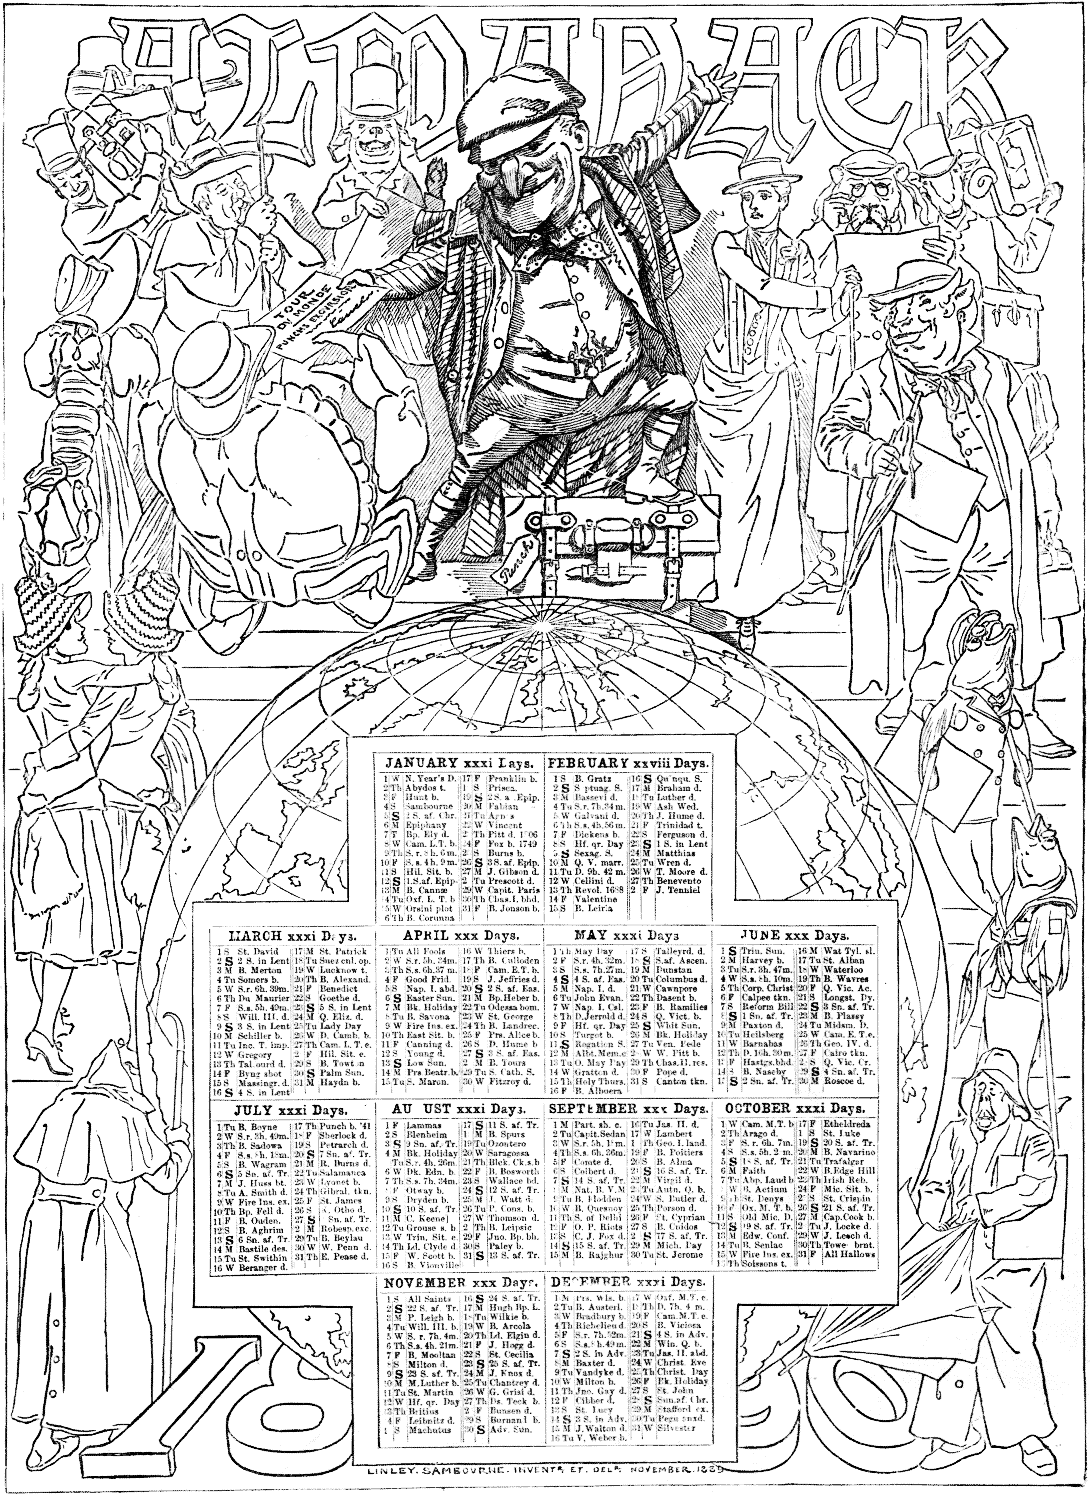 ALMANACK
TOUR
DU MONDE
PUNCH'S EXCURSION
Punch
JANUARY xxxi Days.
1 W N. Year's D.
2 Th Abydos t.
3 F Hunt b.
4 S Sambourne
5 S 2 S. af. Chr.
6 M Epiphany
7 T Bp. Ely d.
8 W Cam. L.T. b.
10 F S.s. 4h. 9m.
11 S Hil. Sit. b.
12 S 1.S.af. Epip.
13 M B. Cannæ
4 Tu Oxf. L. T. b
5 W Orsini plot
6 Th B. Corunna
17 F Franklin b.
1 S Prisca.
19 S 2 S. a. Epip.
20 M Fabian
21 Tu Agnes
22 W Vincent
2 Th Pitt d. 1806
24 F Fox b. 1749
2 S Burns b.
26 S 3 S. af. Epip.
27 M J. Gibson d.
2 Tu Prescott d.
29 W Capit. Paris
30 Th Chas. I. bhd.
31 F B. Jonson b.
FEBRUARY xxviii Days.
1 S B. Gratz
2 S Septuag. S.
3 M Bassevi d.
4 Tu S.r. 7h.34m.
5 W Galvani d.
6 Th S.s. 4h.56m.
7 F Dickens b.
8 S Hf. qr. Day
9 S Sexag. S.
10 M Q. V. marr.
11 Tu D. 9h. 42 m.
12 W Cellini d.
13 Th Revol. 1688
14 F Valentine
15 S B. Leiria
16 S Quinqu. S.
17 M Braham d.
18 Tu Luther d.
19 W Ash Wed.
20 Th J. Hume d.
21 F Trinidad t.
22 S Ferguson d.
23 S 1 S. in Lent
24 M Matthias
25 Tu Wren d.
26 W T. Moore d.
27 Th Benevento
2 F J. Tenniel
MARCH xxxi Days.
1 S St. David
2 S 2 S. in Lent
3 M B. Merton
4 Tu Somers b.
5 W S.r. 6h. 39m.
6 Th Du Maurier
7 F S.s. 5h. 49m.
8 S Will. III. d.
9 S 3 S. in Lent
10 M Schiller b.
11 Tu Inc. T. imp.
12 W Gregory
13 Th Talfourd d.
14 F Byng shot
15 S Massingr. d.
16 S 4 S. in Lent
17 M St. Patrick
18 Tu Suez cnl. op.
19 W Lucknow t.
20 Th B. Alexand.
21 F Benedict
22 S Goethe d.
23 S 5 S. in Lent
24 M Q. Eliz. d.
25 Tu Lady Day
26 W D. Camb. b.
27 Th Cam. L. T. e.
2 F Hil. Sit. e.
29 S B. Towton
30 S Palm Sun.
31 M Haydn b.
APRIL xxx Days.
1 Tu All Fools
2 W S.r. 5h. 34m.
3 Th S.s. 6h.37 m.
4 F Good Frid.
5 S Nap. I. abd.
6 S Easter Sun.
7 M Bk. Holiday
8 Tu B. Savona
9 W Fire Ins. ex.
10 Th East Sit. b.
11 F Canning d.
12 S Young d.
13 S Low Sun.
14 M Prs Beatr. b.
15 Tu S. Maron.
16 W Thiers b.
17 Th B. Culloden
18 F Cam. E.T. b.
19 S J. Jefries d.
20 S 2 S. af. Eas.
21 M Bp. Heber b.
22 Tu Odessa bom.
23 W St. George
24 Th B. Landrec.
25 F Prs. Alice b.
26 S D. Hume b.
27 S 3 S. af. Eas.
2 M B. Tours
29 Tu S. Cath. S.
30 W Fitzroy d.
MAY xxxi Days
1 Th May Day
2 F S.r. 4h. 32m.
3 S S.s. 7h.27m.
4 S 4 S. af. Eas.
5 M Nap. I. d.
6 Tu John Evan.
7 W Nap. I. Csl.
8 Th D. Jerrold d.
9 F Hf. qr. Day
10 S Turgot b.
11 S Rogation S.
12 M Albt. Mem. c
13 Tu O. May Day
14 W Gratton d.
15 Th Holy Thurs.
16 F B. Albuera
17 S Talleyrd. d.
18 S S. af. Ascen.
19 M Dunstan
20 Tu Columbus d.
21 W Cawnpore
22 Th Dasent b.
23 F B. Ramilies
24 S Q. Vict. b.
25 S Whit Sun.
26 M Bk. Holiday
27 Tu Ven. Fede
2 W W. Pitt b.
29 Th Chl. II. res.
30 F Pope d.
31 S Canton tkn.
JUNE xxx Days.
1 S Trin. Sun.
2 M Harvey b.
3 Tu S.r. 3h. 47m.
4 W S.s. 8h. 10m.
5 Th Corp. Christ
6 F Calpee tkn.
7 S Reform Bill
8 S 1 Sn. af. Tr.
9 M Paxton d.
10 Tu Heilsberg
11 W Barnabas
12 Th D. 16h. 30m.
13 F Hastgs. bhd.
14 S B. Naseby
15 S 2 Sn. af. Tr.
16 M Wat Tyl. sl.
17 Tu St. Alban
18 W Waterloo
19 Th B. Wavres
20 F Q. Vic. Ac.
21 S Longst. Dy.
22 S 3 Sn. af. Tr.
23 M B. Plassy
24 Tu Midsm. D.
25 W Cam. E. T. e.
26 Th Geo. IV. d.
27 F Cairo tkn.
2 S Q. Vic. Cr.
29 S 4 Sn. af. Tr.
30 M Roscoe d.
JULY xxxi Days.
1 Tu B. Boyne
2 W S.r. 3h. 49m.
3 Th B. Sadowa
4 F S.s. 8h. 18m.
5 S B. Wagram
6 S 5 Sn. af. Tr.
7 M J. Huss bt.
8 Tu A. Smith d.
9 W Fire Ins. ex
10 Th Bp. Fell d.
11 F B. Ouden.
12 S B. Aghrim
13 S 6 Sn. af. Tr.
14 M Bastile des.
15 Tu St. Swithin
16 W Beranger d.
17 Th Punch b. '41
18 F Sherlock d.
19 S Petrarch d.
20 S 7 Sn. af. Tr.
21 M R. Burns d.
22 Tu Salamanca
23 W Lyonet b.
24 Th Gibral. tkn.
25 F St. James
26 S K. Otho d.
27 S Sn. af. Tr.
2 M Robesp. exc.
29 Tu B. Beylau
30 W W. Penn d.
31 Th E. Pease d.
AU UST xxxi Days.
1 F Lammas
2 S Blenheim
3 S 9 Sn. af. Tr.
4 M Bk. Holiday
Tu S.r. 4h. 26m.
6 W Dk. Edn. b.
7 Th S.s. 7h. 34m.
F Otway b.
9 S Dryden b.
10 S 10 S. af. Tr.
11 M C. Keene
12 Tu Grouse s. b.
13 W Trin. Sit. e.
14 Th Ld. Clyde d
15 F W. Scott b.
16 S B. Vionville
17 S 11 S. af. Tr.
1 M B. Spurs
19 Tu Ozontero
20 W Saragossa
21 Th Blck. Ck. s. b
22 F B. Bosworth
23 S Wallace bd.
24 S 12 S. af. Tr.
25 M J. Watt d.
26 Tu P. Cons. b.
27 W Thomson d.
2 Th B. Leipsic
29 F Jno. Bp. bh.
30 S Paley b.
31 S 13 S. af. Tr.
SEPTEMBER xxx Days.
1 M Part. sh. c.
2 Tu Capit. Sedan
3 W S.r. 5h. 18m.
4 Th S.s. 6h. 36m.
5 F Comte d.
6 S Colbert d.
7 S 14 S. af. Tr.
M Nat. B. V. M
9 Tu B. Flodden
10 W B. Quesnoy
11 Th S. of Delhi
12 F O. P. Riots
13 S C. J. Fox d.
14 S 15 S. af. Tr.
15 M B. Rajghur
16 Tu Jas. II. d.
17 W Lambert
1 Th Geo. I. land.
19 F B. Poitiers
20 S B. Alma
21 S 16 S. af. Tr.
22 M Virgil d.
23 Tu Autn. Q. b.
24 W S. Butler d.
25 Th Porson d.
26 F St. Cyprian
27 S B. Busaco
2 S 17 S. af. Tr.
29 M Mich. Day
30 Tu St. Jerome
OCTOBER xxxi Days.
1 W Cam. M.T. b
2 Th Arago d.
3 F S.r. 6h. 7m.
4 S S.s. 5h. 2 m.
5 S 18 S. af. Tr.
6 M Faith
7 Tu Abp. Laud b
W B. Actium
9 Th St. Denys
10 F Ox. M. T. b.
11 S Old Mic. D.
12 S 19 S. af. Tr.
13 M Edw. Conf.
14 Tu B. Senlac
15 W Fire Ins. ex.
16 Th Soissons t.
17 F Etheldreda
1 S St. Luke
19 S 20 S. af. Tr.
20 M B. Navarino
21 Tu Trafalgar
22 W B. Edge Hill
23 Th Irish Reb.
24 F Mic. Sit. b.
25 S St. Crispin
26 S 21 S. af. Tr.
27 M Cap. Cook b.
2 Tu J. Locke d.
29 W J. Leech d.
30 Th Towr brnt.
31 F All Hallows
NOVEMBER xxx Days.
1 S All Saints
2 S 22 S. af. Tr.
3 M P. Leigh b.
4 Tu Will. III. b.
5 W S. r. 7h. 4m.
6 Th S.s. 4h. 21m.
7 F B. Mooltan
8 S Milton d.
9 S 23 S. af. Tr.
10 M M. Luther b.
11 Tu St. Martin
12 W Hf. qr. Day
13 Th Britius
4 F Leibnitz d.
1 S Machutus
16 S 24 S. af. Tr.
17 M Hugh Bp. L.
18 Tu Wilkie b.
19 W B. Arcola
20 Th Ld. Elgin d.
21 F J. Hogg d.
22 S St. Cecilia
23 S 25 S. af. Tr.
24 M J. Knox d.
25 Tu Chantrey d.
26 W G. Grisi d.
27 Th Ds. Teck b.
2 F Bunsen d.
29 S Burnand b.
30 S Adv. Sun.
DECEMBER xxxi Days.
1 M Prs. Wls. b.
2 Tu B. Austerl.
3 W Bradbury b.
4 Th Richelieu d.
5 F S.r. 7h. 52m.
6 S S.s. 3h. 49m.
7 S 2 S. in Adv.
8 M Baxter d.
9 Tu Vandyke d.
10 W Milton b.
11 Th Jno. Gay d.
12 F Cibber d.
13 S St. Lucy
14 S 3 S. in Adv.
15 M J. Walton d.
16 Tu V. Weber b.
17 W Oxf. M.T. e.
1 Th D. 7h. 4 m.
19 F Cam. M.T. e.
20 S B. Viciosa
21 S 4 S. in Adv.
22 M Win. Q. b.
23 Tu Jas. II. abd.
24 W Christ. Eve
25 Th Christ. Day
26 F Bk. Holiday
27 S St. John
2 S Sun. af. Chr.
29 M Stafford ex.
30 Tu Pegu anxd.
31 W Silvester
1890
LINLEY. SAMBOURNE. INVENT. ET. DEL. NOVEMBER. 1889